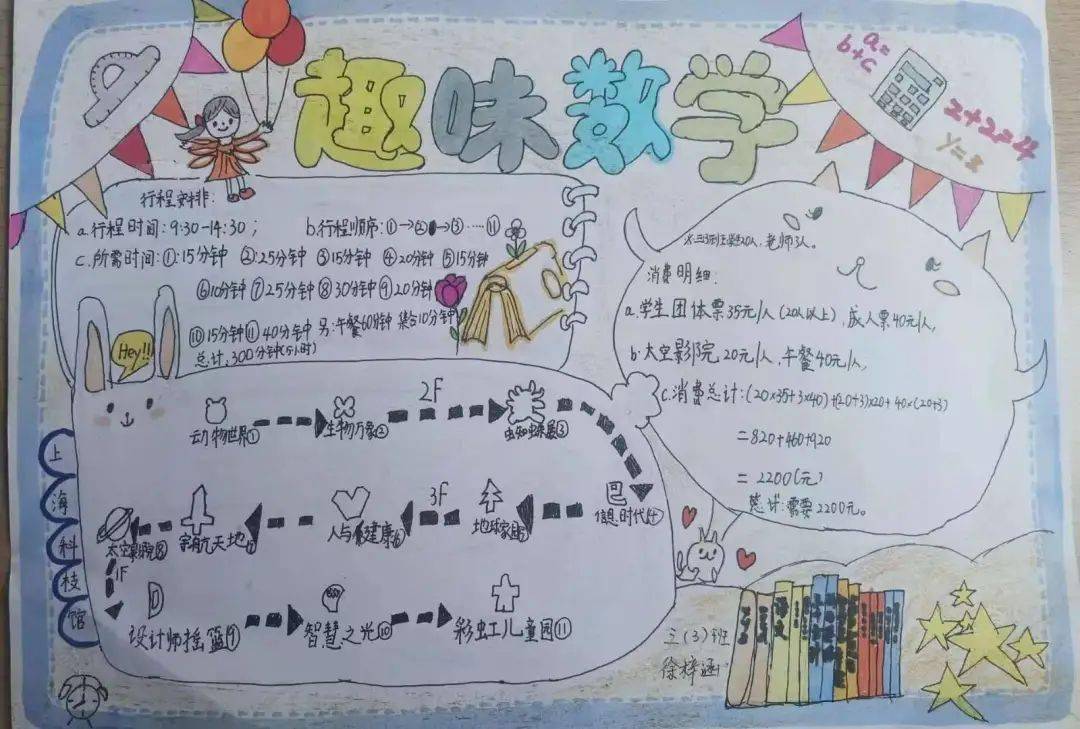 趣味数学
a=
b+c
2+2=4
y=x
行程安排:
a.行程时间:9:30-14:30;
b.行程顺序:①→②→③……⑪
c.所需时间:①:15分钟 ②:25分钟 ③15分钟 ④20分钟 ⑤15分钟
⑥10分钟 ⑦25分钟 ⑧30分钟 ⑨20分钟
⑩15分钟 ⑪40分钟 另:午餐60分钟 集合10分钟
总计:300分钟(5小时)
Hey!!
学生20人,老师3人。
消费明细:
a.学生团体票35元/人(20人以上),成人票40元/人,
b.太空影院,20元/人,午餐40元/人,
c.消费总计:(20×35+3×40)+(20+3)×20+40×(20+3)
=820+460+920
=2200(元)
总计:需要2200元。
2F
动物世界①
生物万象②
蜘蛛展③
上海科技馆
3F
太空影院⑧
宇航天地⑦
人与健康⑥
地球家园⑤
信息时代④
1F
设计师摇篮⑨
智慧之光⑩
彩虹儿童园⑪
三(3)班
徐梓涵